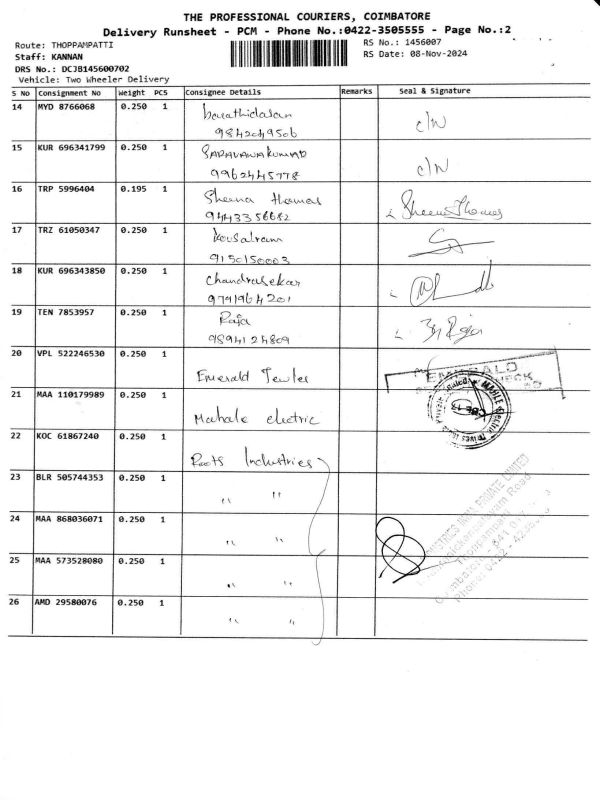 THE PROFESSIONAL COURIERS, COIMBATORE
Delivery Runsheet - PCM - Phone No.:0422-3505555 - Page No.:2
Route: THOPPAMPATTI
RS No.: 1456007
Staff: KANNAN
RS Date: 08-Nov-2024
DRS No.: DCJB145600702
Vehicle: Two Wheeler Delivery
S No Consignment No Weight PCS Consignee Details Remarks Seal & Signature
14 MYD 8766068 0.250 1 barathidasan
9842049506 C/N
15 KUR 696341799 0.250 1 SARAVANAKUMAR
9962445778 C/N
16 TRP 5996404 0.195 1 Sheena thomas
9443356682 Sheena Thomas
17 TRZ 61050347 0.250 1 Kousalram
9150150003
18 KUR 696343850 0.250 1 Chandrasekar
9791964201
19 TEN 7853957 0.250 1 Raja
9894124809
20 VPL 522246530 0.250 1 Emerald Jewler
EMERALD
21 MAA 110179989 0.250 1 Mahale electric
MAHLE Electric Drives
22 KOC 61867240 0.250 1 Roots Industries
23 BLR 505744353 0.250 1 " "
24 MAA 868036071 0.250 1 " "
25 MAA 573528080 0.250 1 " "
26 AMD 29580076 0.250 1 " "
INDUSTRIES INDIA PRIVATE LIMITED
Road
Thoppampatti
Coimbatore - 641 017
Phone: 0422 -